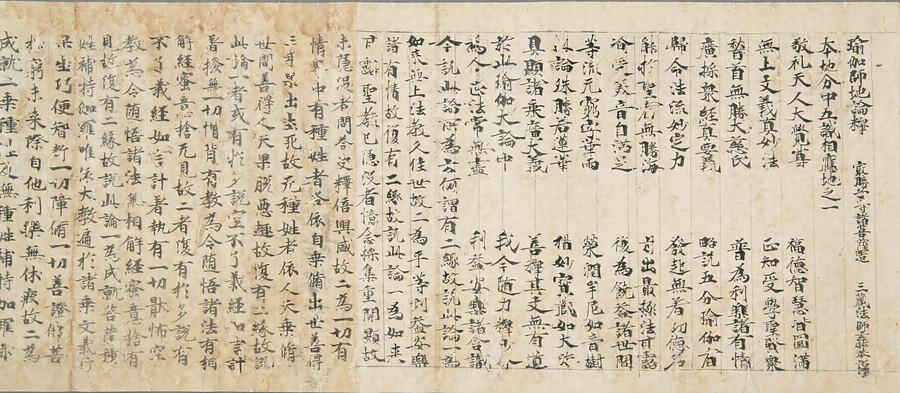 瑜伽師地論釋 最勝子等諸菩薩造 三藏法師玄奘奉詔譯
本地分中五識相應地之一
敬礼天人大覺尊 福德智慧皆圓滿
無上文義真妙法 正知受學聖賢衆
稽首無勝大慈氏 普為利樂諸有情
廣採衆經真要義 略說五分瑜伽者
歸命法流妙定力 發起無著功德名
能於聖者無勝海 引出最極法甘露
飡受美音自滿足 復為饒益諸世間
等流无窮字花雨 榮潤芽尼如意樹
此論殊勝若蓮華 猶妙寶藏如大海
具顯諸乘廣大義 善釋其文無有遺
於此瑜伽大論中 我今隨力釋少分
為令正法常無盡 利益安樂諸含識
今說此論所為云何謂有二緣故說此論一為
如來無上法教久住世故二為平等利益安樂
諸有情故復有二緣故說此論一為如來
甘露聖教已隱沒者憶念採集重開顯故
未隱沒者問答決擇倍興盛故二為一切有
情界中有種姓者各依自乘脩出世善得
三乘果出生死故无種姓者依人天乘脩
世間善得人天果脫惡趣故復有二緣故說
此論一者或有於彼說空不了義經如言計
著撥無一切憎背有教為令隨悟諸法有相
解經蜜意捨无見故二者復有於彼說有
不了義經如言計著執有一切猒怖空
教為令隨悟諸法無相解經蜜意捨有
見故復有二緣故說此論一為成就菩薩種
姓補特伽羅唯依大教遍於諸乘文義行
果生巧便智斷一切障脩一切善證佛菩
提窮未來際自他利樂無休廢故二為
成就二乘種姓及無種姓補特伽羅亦